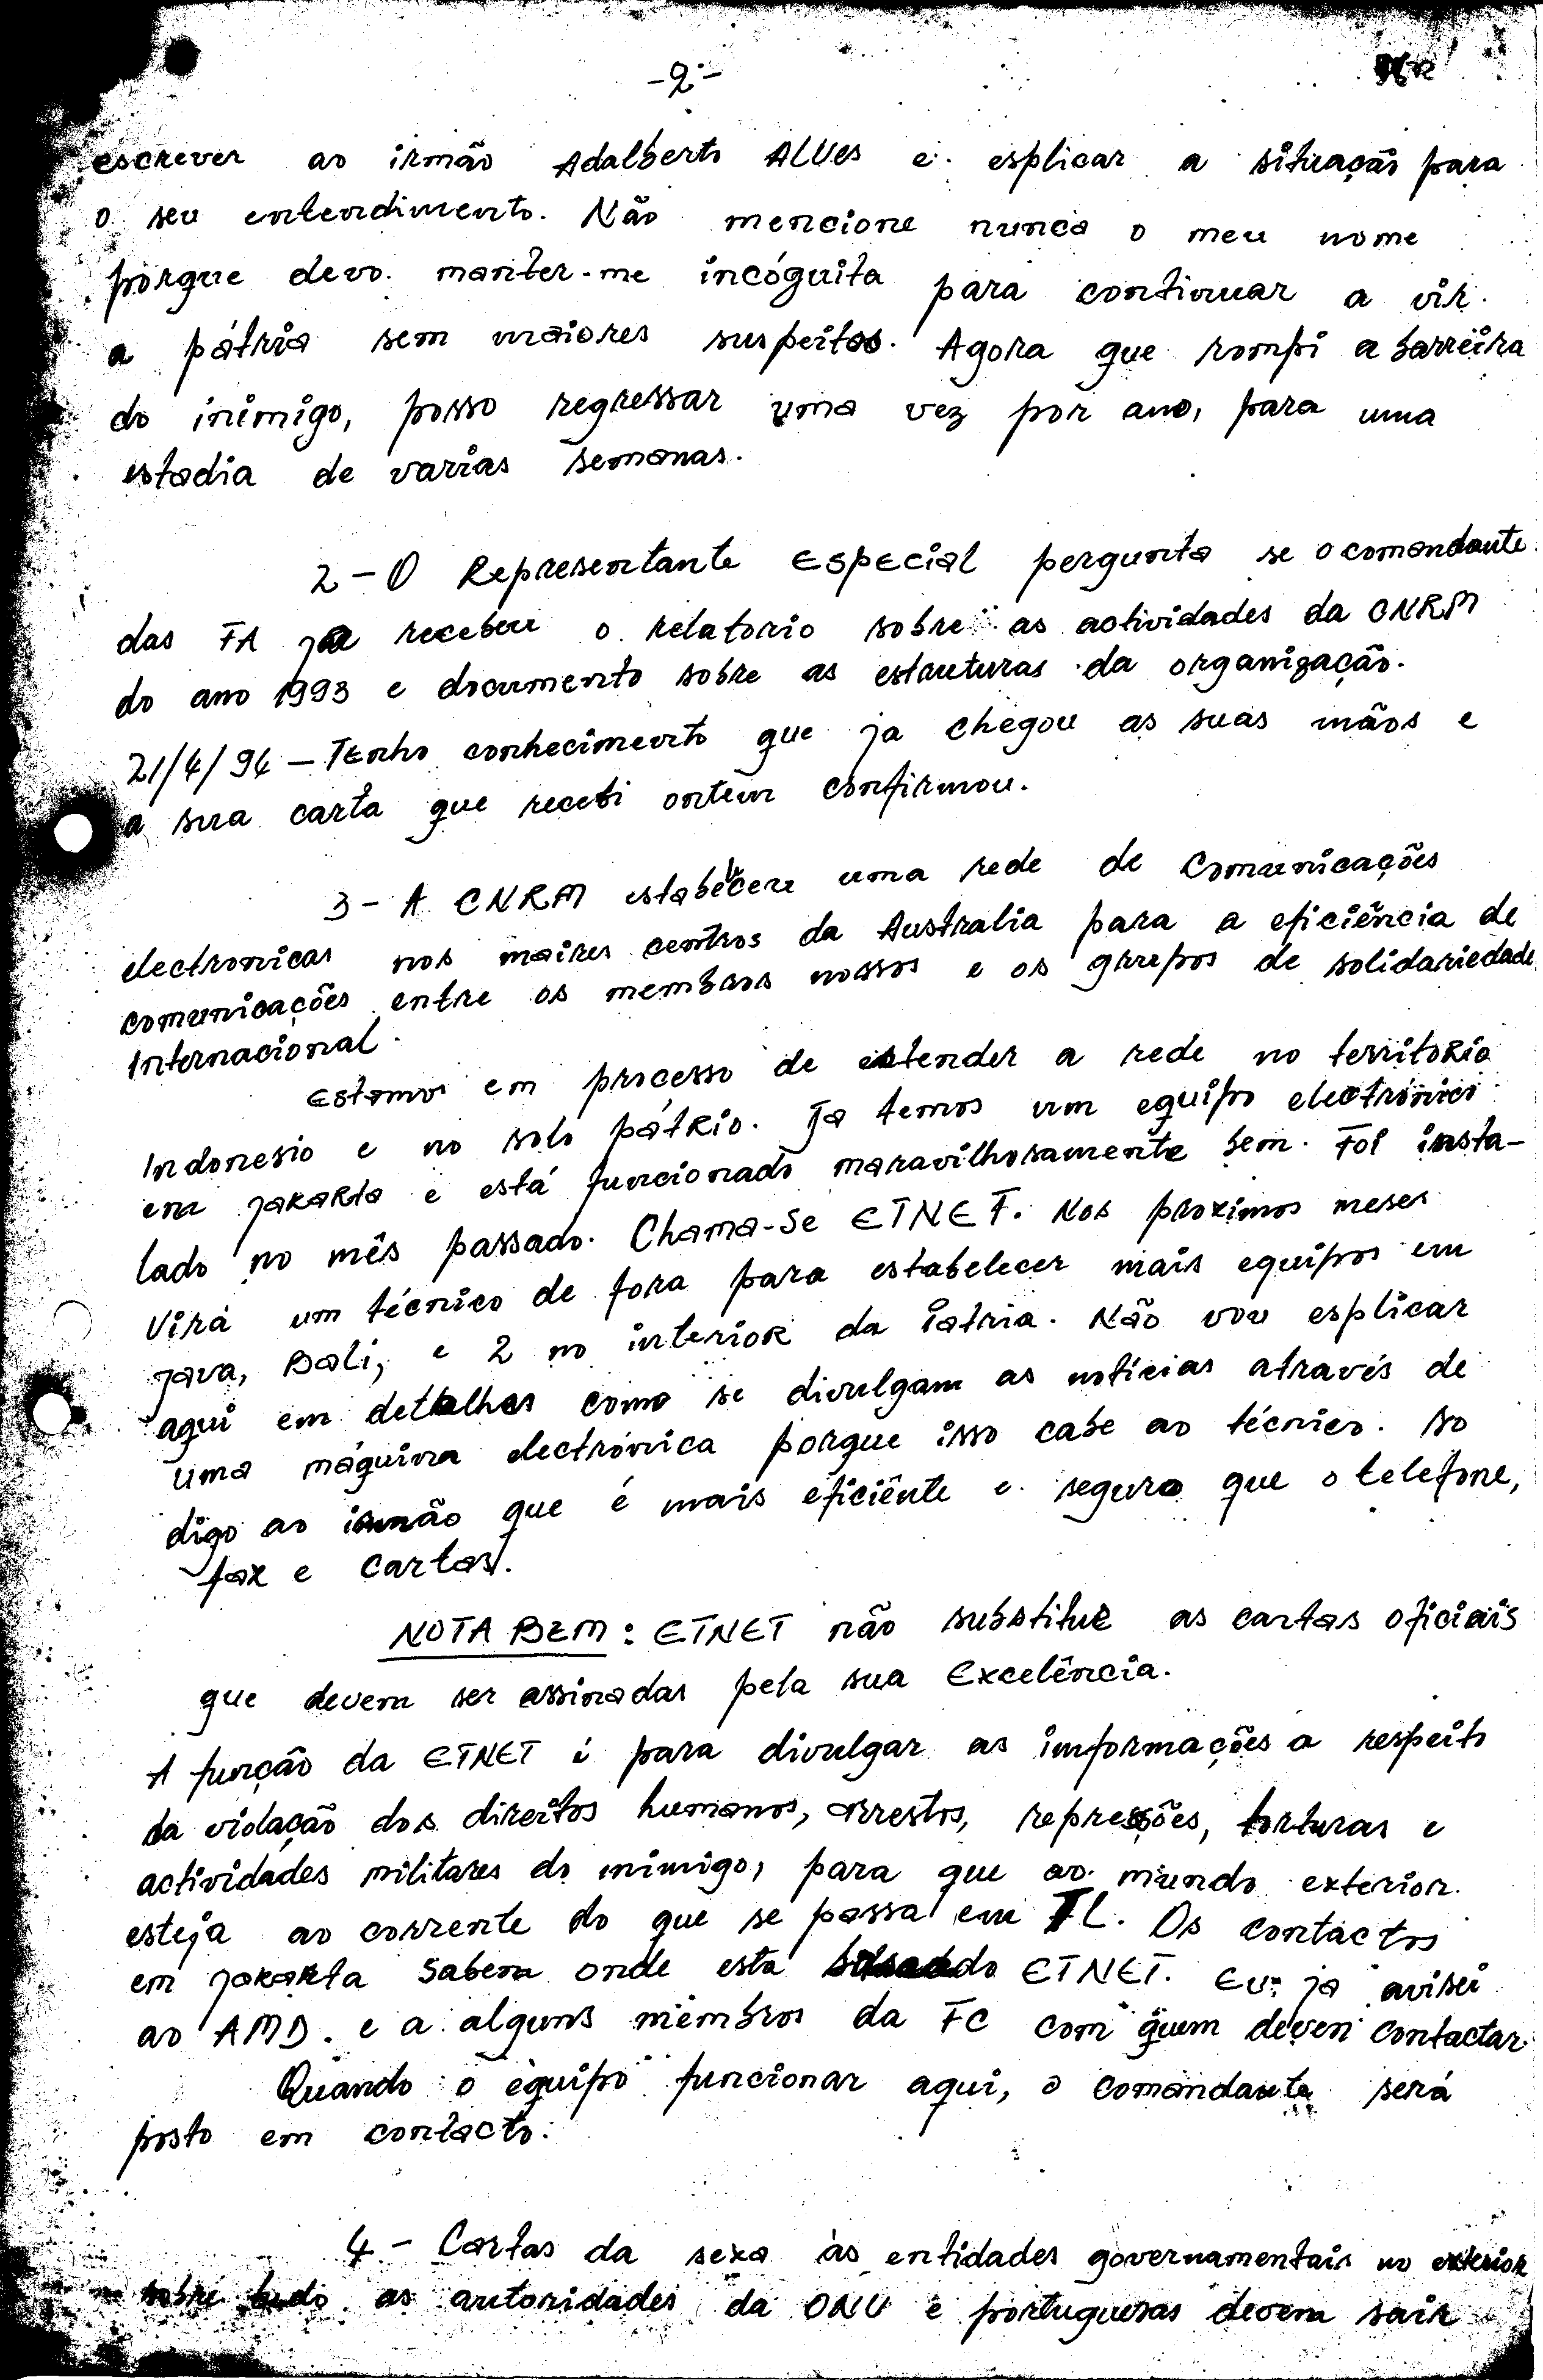 -2-
escrever ao irmão Adalberto ALVes e esplicar a situação para
o seu entendimento. Não mencione nunca o meu nome
porque devo manter-me incóguita para continuar a vir
a pátria sem maiores suspeitas. Agora que rompi a barreira
do inimigo, posso regressar uma vez por ano, para uma
estadia de varias semanas.
2 - O Representante Especial pergunta se o comandante
das FA ja recebeu o relatorio sobre as actividades da CNRM
do ano 1993 e documento sobre as estruturas da organização.
21/4/94 - Tenho conhecimento que ja chegou as suas mãos e
a sua carta que recebi ontem confirmou.
3 - A CNRM estabeleceu uma rede de comunicações
electronicas nos maires centros da Australia para a eficiência de
comunicações entre os membros nossos e os grupos de solidariedade
Internacional.
Estamos em processo de estender a rede no territorio
Indonesio e no solo pátrio. Ja temos um equipo electrónico
em Jakarta e está funcionado maravilhosamente bem. Foi insta-
lado no mês passado. Chama-se ETNET. Nos proximos meses
virá um técnico de fora para estabelecer mais equipos em
Java, Bali, e 2 no interior da Patria. Não vou esplicar
aqui em detalhes como se divulgam as noticias através de
uma máquina electrónica porque isso cabe ao técnico. So
digo ao irmão que é mais eficiênte e seguro que o telefone,
fax e cartas.
NOTA BEM: ETNET não substitue as cartas oficiais
que devem ser assinadas pela sua Excelência.
A função da ETNET é para divulgar as informações a respeito
da violação dos direitos humanos, arrestos, repressões, torturas e
actividades militares do inimigo, para que ao mundo exterior
esteja ao corrente do que se passa em TL. Os contactos
em Jakarta sabem onde esta ETNET. Eu ja avisei
ao AMD. e a alguns membros da FC com quem devem contactar.
Quando o equipo funcionar aqui, o comandante será
posto em contacto.
4 - Cartas da sexa às entidades governamentais no exterior
sobre tudo as autoridades da ONU e portuguesas devem sair